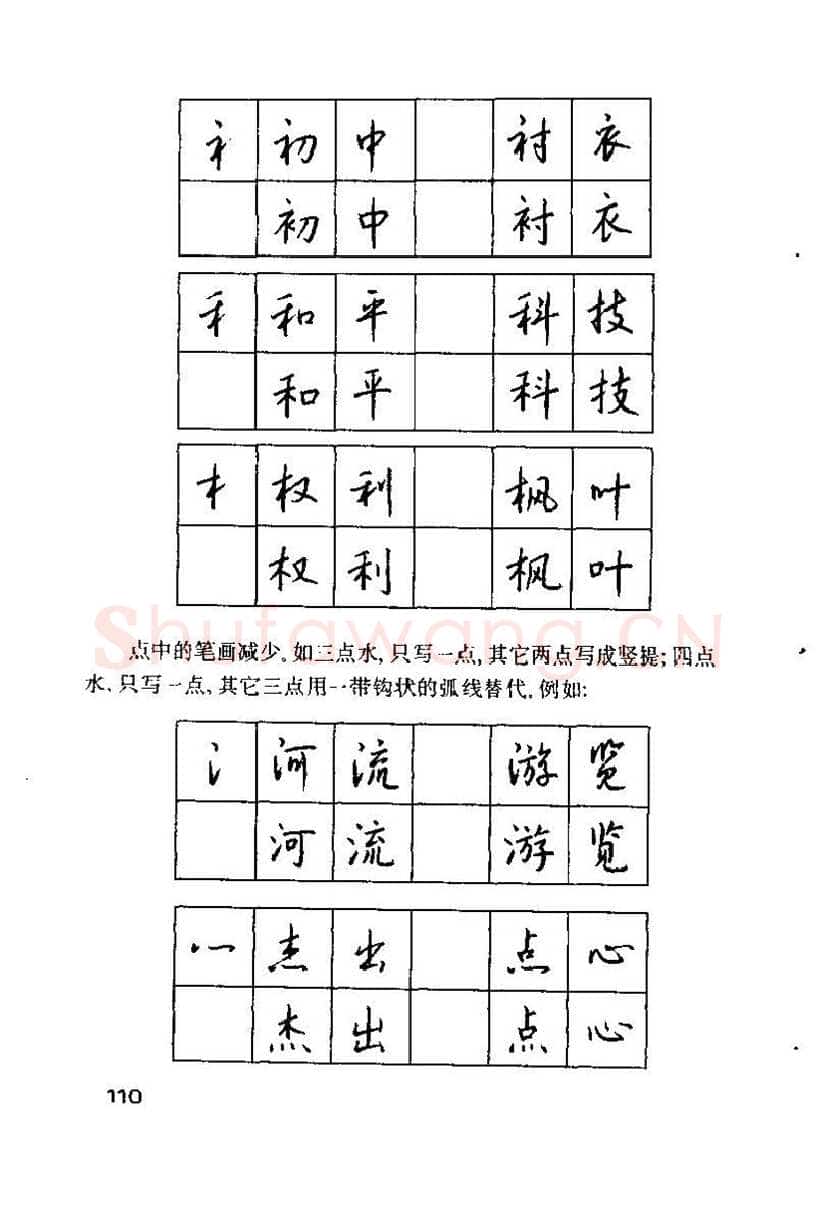 衤 初 中 衬 衣
初 中 衬 衣
禾 和 平 科 技
和 平 科 技
木 权 利 枫 叶
权 利 枫 叶
Shufawang.CN
点中的笔画减少。如三点水,只写一点,其它两点写成竖提;四点
水,只写一点,其它三点用一带钩状的弧线替代。例如:
氵 河 流 游 览
河 流 游 览
灬 杰 出 点 心
杰 出 点 心
110